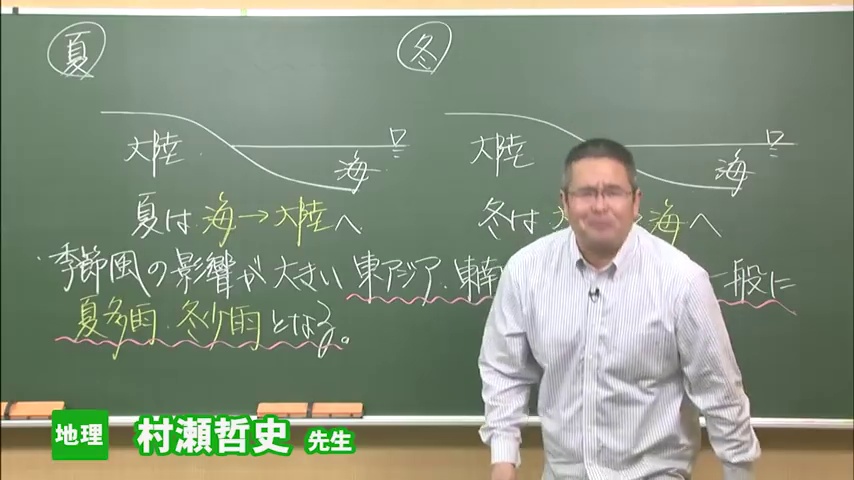 夏
冬
大陸
海
大陸
海
夏は 海→大陸へ
冬は 海へ
・季節風の影響が大きい 東アジア・東南 一般に
夏多雨・冬少雨となる。
地理 村瀬哲史 先生